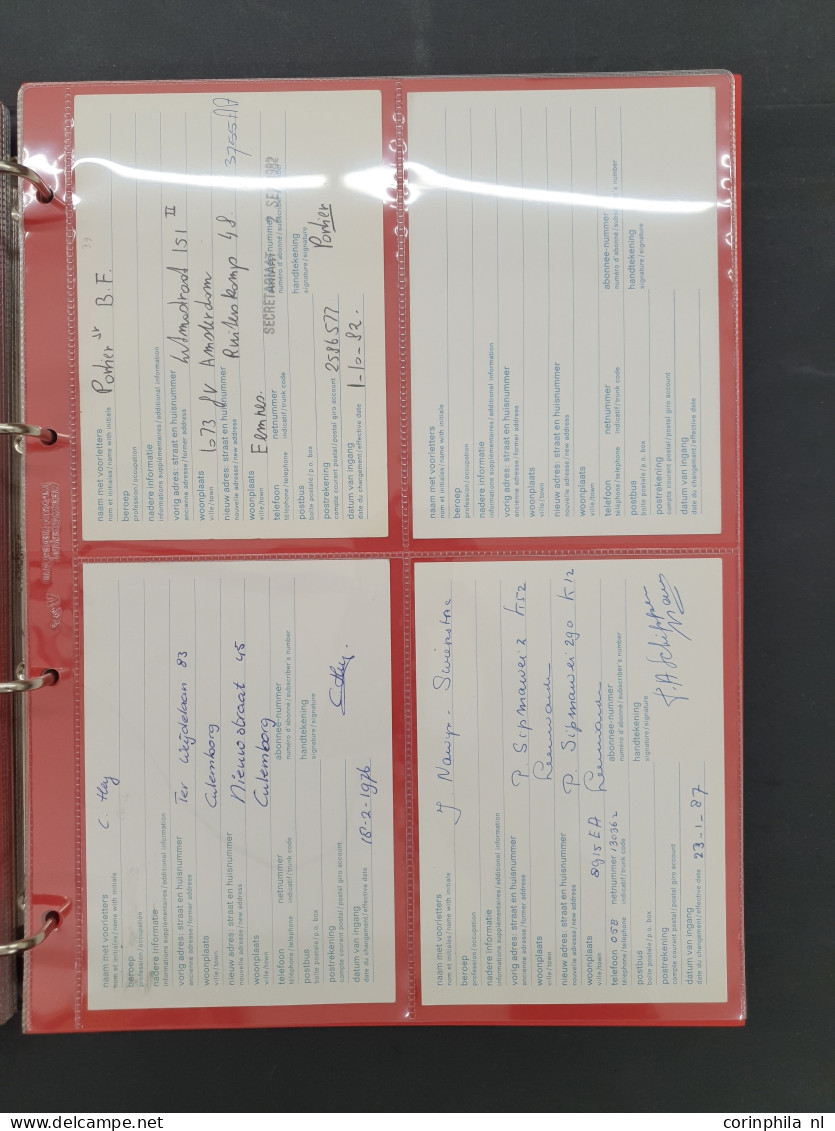 naam met voorletters C. Hey
nom et initiales/name with initials
beroep
profession/occupation
nadere informatie
informations supplémentaires/additional information
vorig adres: straat en huisnummer Ter Weijdelaan 83
ancienne adresse/former address
woonplaats Culemborg
ville/town
nieuw adres: straat en huisnummer Nieuwstraat 45
nouvelle adresse/new address
woonplaats Culemborg
ville/town
telefoon netnummer abonnee-nummer
téléphone/telephone indicatif/trunk code numéro d'abonné/subscriber's number
postbus handtekening
boîte postale/p.o. box signature/signature
postrekening
compte courant postal/postal giro account
datum van ingang 18-2-1976 C Hey
date du changement/effective date
naam met voorletters Portier Jr B.F.
nom et initiales/name with initials
beroep
profession/occupation
nadere informatie
informations supplémentaires/additional information
vorig adres: straat en huisnummer Lutmastraat 151 II
ancienne adresse/former address
woonplaats 1073 Amsterdam
ville/town
nieuw adres: straat en huisnummer Ruiterskamp 48 3755AA
nouvelle adresse/new address
woonplaats Eemnes.
ville/town
SECRETARIAAT 2 SE 1982
telefoon netnummer
téléphone/telephone indicatif/trunk code
postbus handtekening
boîte postale/p.o. box signature/signature
postrekening 2586577 Portier
compte courant postal/postal giro account
datum van ingang 1-10-82.
date du changement/effective date
naam met voorletters
nom et initiales/name with initials
beroep
profession/occupation
nadere informatie
informations supplémentaires/additional information
vorig adres: straat en huisnummer P. Sipmawei 2 K52
ancienne adresse/former address
woonplaats Leeuwarden
ville/town
nieuw adres: straat en huisnummer P. Sipmawei 290 K12
nouvelle adresse/new address
woonplaats 8915 EA Leeuwarden
ville/town
telefoon 058 netnummer 130362 abonnee-nummer
téléphone/telephone indicatif/trunk code numéro d'abonné/subscriber's number
postbus handtekening
boîte postale/p.o. box signature/signature
postrekening
compte courant postal/postal giro account
datum van ingang 23-1-87
date du changement/effective date
naam met voorletters
nom et initiales/name with initials
beroep
profession/occupation
nadere informatie
informations supplémentaires/additional information
vorig adres: straat en huisnummer
ancienne adresse/former address
woonplaats
ville/town
nieuw adres: straat en huisnummer
nouvelle adresse/new address
woonplaats
ville/town
telefoon netnummer abonnee-nummer
téléphone/telephone indicatif/trunk code numéro d'abonné/subscriber's number
postbus handtekening
boîte postale/p.o. box signature/signature
postrekening
compte courant postal/postal giro account
datum van ingang
date du changement/effective date
www.delcampe.net corinphila nl